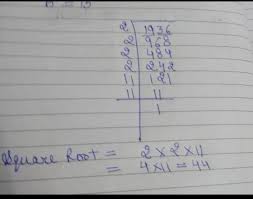 2 | 1936
2 | 968
2 | 484
2 | 242
11 | 121
11 | 11
1
Square Root = 2 × 2 × 11
= 4 × 11 = 44